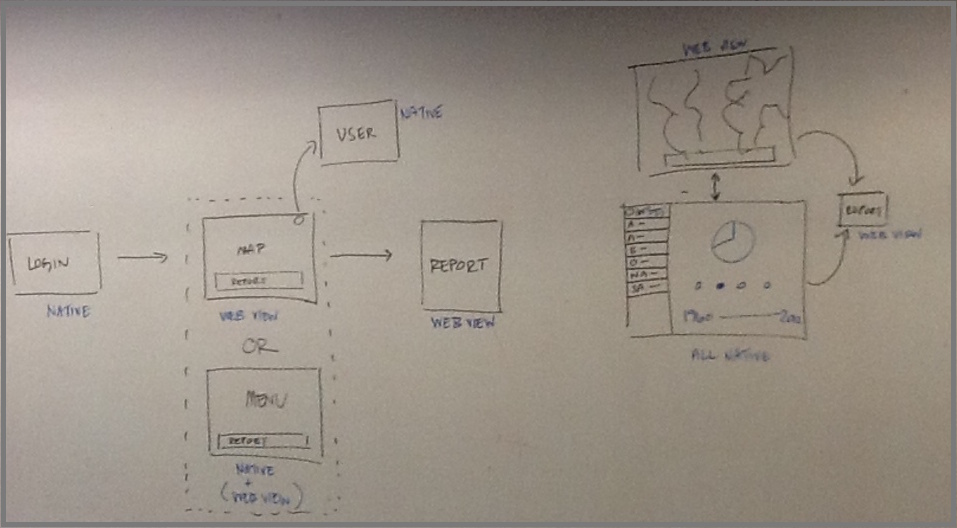 USER
NATIVE
LOGIN
NATIVE
MAP
REPORT
WEB VIEW
OR
MENU
REPORT
NATIVE
+
(WEB VIEW)
REPORT
WEB VIEW
WEB VIEW
A -
A -
E -
O -
NA -
SA -
1960
ALL NATIVE
REPORT
WEB VIEW